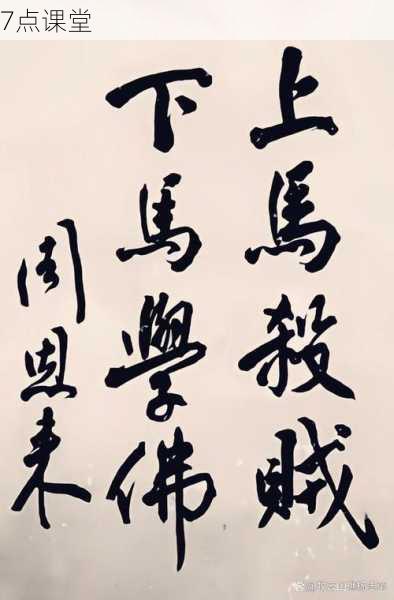 7点课堂
上馬殺賊
下馬學佛
周恩来